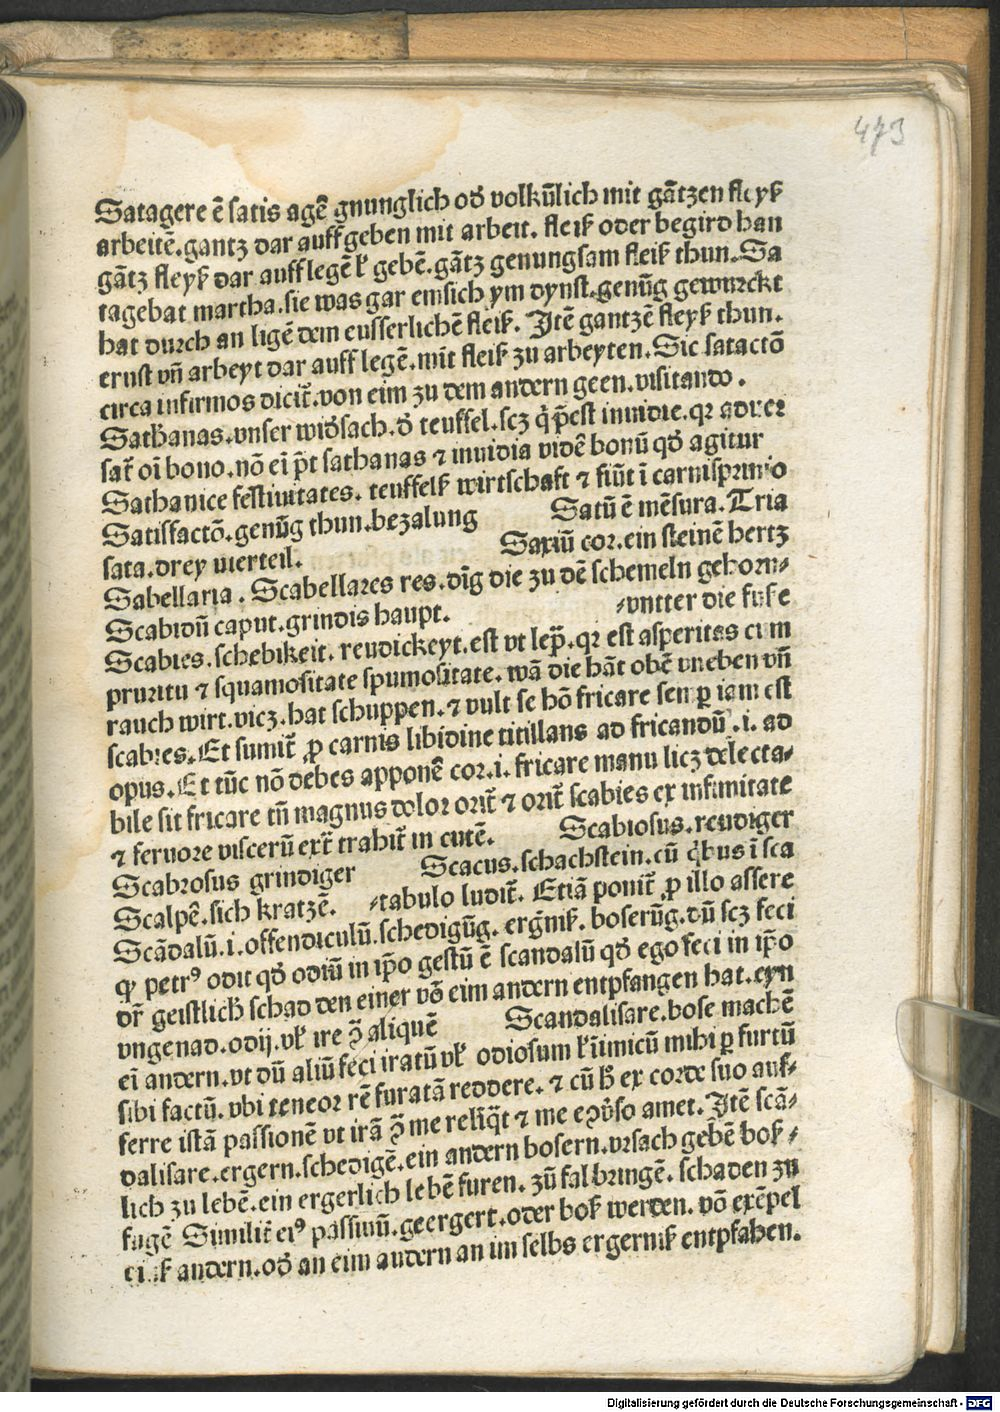 473
Satagere ē satis agē gnunglich od̄ volkūlich mit gātzen fleyß
arbeitē.gantz dar auff geben mit arbeit. fleiß oder begird han
gātz fleyß dar auff legē ł gebē.gātz genungsam fleiß thun.Sa
tagebat martha.sie was gar emsich ym dynst.genūg gewurckt
hat durch an ligē dem eusserlichē fleiß. Jtē gantzē fleyß thun.
ernst vn̄ arbeyt dar auff legē.mit fleiß zu arbeyten.Sic satactō
circa infirmos dicit̄.von eim zu dem andern geen.visitando.
Sathanas.vnser wid̄sach.d̄ teuffel.scz q̄ p̄est inuidie.qꝛ aduer
sat̄ oī bono.nō eī p̄t sathanas ⁊ inuidia vidē bonū qd̄ agitur
Sathanice festiuitates. teuffelß wirtschaft ⁊ fiūt ī carnispriuio
Satisfactō.genūg thun.bezalung Satū ē mēsura.Tria
sata.drey vierteil. Saxiū cor.ein steinē hertz
Sabellaria. Scabellares res.dīg die zu dē schemeln gehorn⸗
Scabidū caput.grindis haupt. ⸗vntter die fusse
Scabies.schebikeit. reudickeyt.est vt lep̄.qꝛ est asperitas cum
pruritu ⁊ squamositate spumositate.wā die hāt obē vneben vn̄
rauch wirt.vicz.hat schuppen.⁊ vult se hō fricare sen ꝑ iam est
scabies.Et sumit̄ ꝓ carnis libidine titillans ad fricandū.i. ad
opus.Et tūc nō debes apponē cor.i. fricare manu licz delecta⸗
bile sit fricare tn̄ magnus dolor orit̄ ⁊ orit̄ scabies ex infimitate
⁊ feruore viscerū ext̄ trahit̄ in cutē. Scabiosus.reudiger
Scabrosus grindiger Scacus.schachstein.cū q̄bus ī sca
Scalpē.sich kratzē. ⸗tabulo ludit̄. Etiā ponit̄ ꝓ illo assere
Scādalū.i.offendiculū.schedigūg. erḡniß. boserūg.dū scz feci
ꝙ petrꝰ odit qd̄ odiū in ip̄o gestū ē scandalū qd̄ ego feci in ip̄o
dr̄ geistlich̄ schad den einer vō eim andern entpfangen hat.eyn
vngenad.odij.vł ire ꝯ̄ aliquē Scandalisare.bose machē
eī andern.vt dū aliū feci iratū vł odiosum ł īimicū mihi ꝑ furtū
sibi factū.vbi teneor rē furatā reddere. ⁊ cū h̄ ex corde suo auf⸗
ferre istā passionē vt irā ꝯ̄ me reliq̄t ⁊ me eꝯūso amet.Jtē scā⸗
dalisare.ergern.schedigē.ein andern bosern.vrsach gebē boß⸗
lich zu lebē.ein ergerlich lebē furen. zū fal bringē. schaden zu
fugē Similit̄ eiꝰ passiuū.geergert.oder boß werden. vō exēpel
andern.od̄ an eim andern an im selbs ergerniß entpfahen.
Digitalisierung gefördert durch die Deutsche Forschungsgemeinschaft - DFG